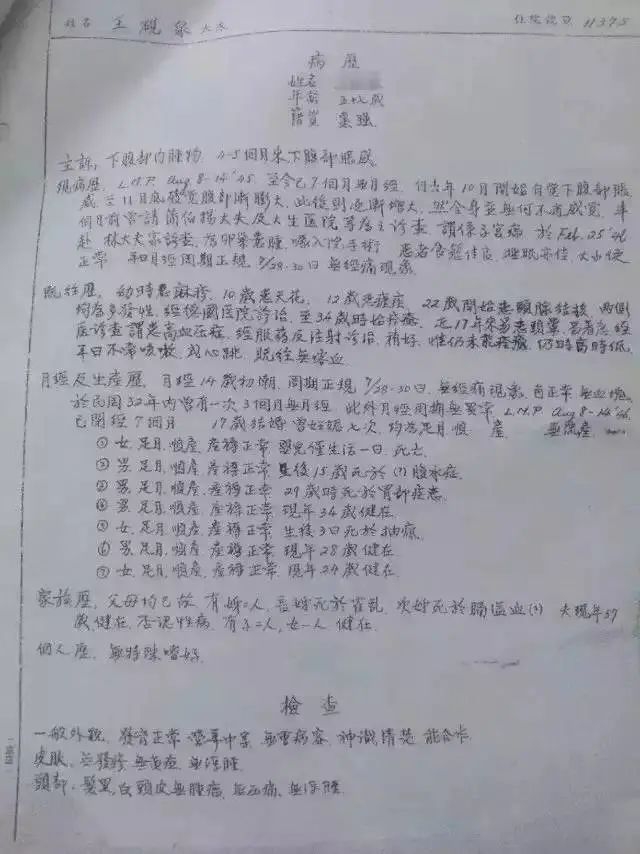 姓名 王硯泉太太 住院號頭 11375
病歷
姓名
年齡 五十七歲
籍貫 棗強
主訴, 下腹部內腫物 4-5個月來下腹部脹感
現病歷, L.M.P. Aug 8-14'45. 至今已7個月無月經. 自去年10月開始自覺下腹部脹
感 至11月底發覺腹部漸膨大, 此後則逐漸增大, 然全身並無何不適感覺, 本
赴 林大夫家診查, 為卵巢囊腫, 囑入院手術 患者食慾佳良, 睡眠亦佳, 大小便
正常 和月經周期正規 7/28-30日 無經痛現象.
既往歷, 幼時患麻疹, 10歲患天花, 12歲患
經德國医院診治, 至34歲時始痊癒. 近17年來常患頭暈,
症診查謂患高血压症, 經服藥及注射診治, 稍好, 惟仍未能痊癒, 仍時高時低,
平日不常咳嗽, 或心跳, 既往無嘔血
月經及生產歷, 月經14歲初潮, 周期正規 7/28-30日, 無經痛現象, 色正常, 無血塊,
於民国32年內曾有一次3個月無月經, 此外月經周期無異常, L.M.P. Aug 8-14'45,
已閉經7個月 17歲結婚 曾妊娠七次, 均為足月順產, 無流產,
① 女, 足月, 順產, 產褥正常 嬰兒僅生活一日, 死亡.
② 男, 足月, 順產, 產褥正常 生後15歲死於(?)腹水症.
③ 男, 足月, 順產, 產褥正常 29歲時死於胃部疾患.
④ 男, 足月, 順產, 產褥正常 現年34歲健在.
⑤ 女, 足月, 順產, 產褥正常 生後3日死於抽瘋.
⑥ 男, 足月, 順產, 產褥正常 現年28歲健在.
⑦ 女, 足月, 順產, 產褥正常 現年24歲健在.
家族歷, 父母均已故 有姊二人, 長姊死於霍乱, 次姊死於腦溢血(?) 夫現年59
歲健在, 否認性病, 有子二人, 女一人 健在.
個人歷, 無特殊嗜好.
檢查
一般外觀, 發育正常 營養中等 無重病容, 神識清楚 能合作
皮膚, 無發疹 無黃疸 無浮腫
頭部, 髮黑, 白 頭皮無腫瘤, 無压痛, 無浮腫.